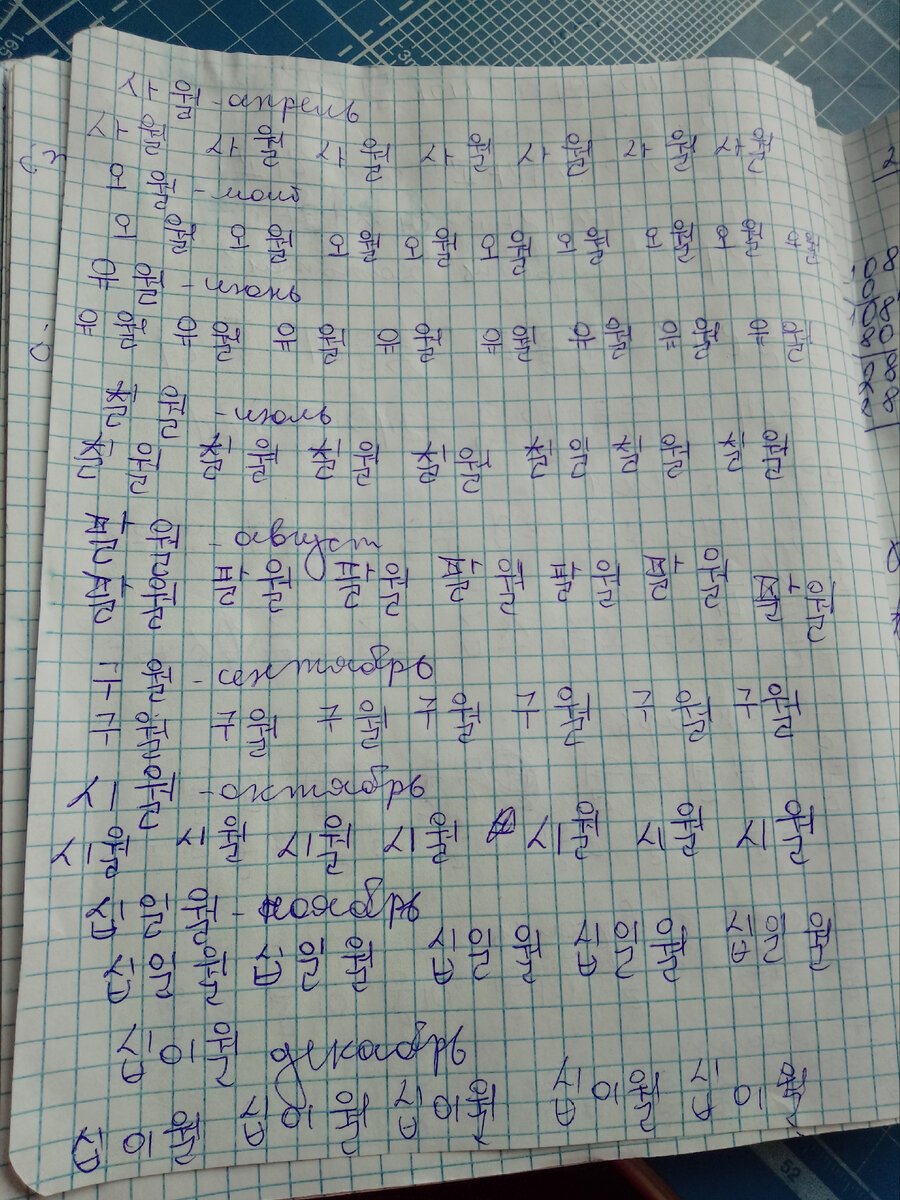 사 월 - апрель
사 월 사 월 사 월 사 월 사 월 사 월 사 월
오 월 - май
오 월 오 월 오 월 오 월 오 월 오 월 오 월 오 월 오 월
유 월 - июнь
유 월 유 월 유 월 유 월 유 월 유 월 유 월 유 월
칠 월 - июль
칠 월 칠 월 칠 월 칠 월 칠 월 칠 월 칠 월
팔 월 - август
팔 월 팔 월 팔 월 팔 월 팔 월 팔 월 팔 월
구 월 - сентябрь
구 월 구 월 구 월 구 월 구 월 구 월 구 월
시 월 - октябрь
시 월 시 월 시 월 시 월 시 월 시 월 시 월
십 일 월 - ноябрь
십 일 월 십 일 월 십 일 월 십 일 월 십 일 월
십 이 월 декабрь
십 이 월 십 이 월 십 이 월 십 이 월 십 이 월